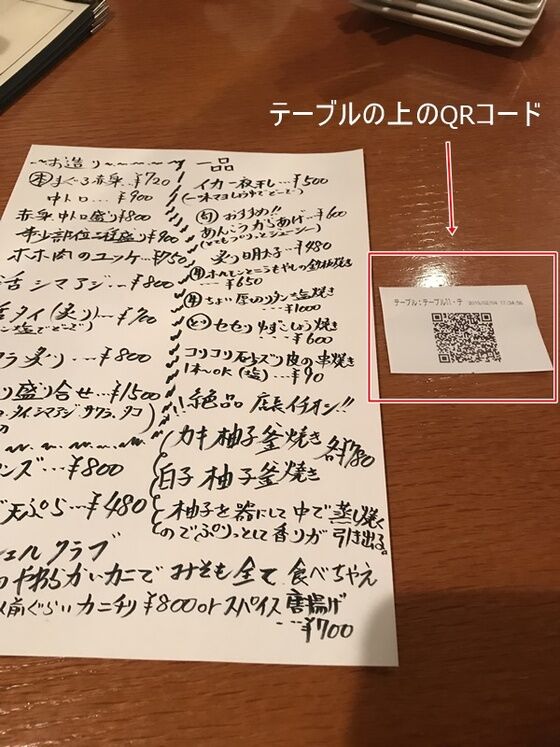 テーブルの上のQRコード
お造り
本まぐろ赤身 ¥720
中トロ…¥900
赤身中トロ盛り¥800
希少部位二種盛り¥900
ホホ肉のユッケ…¥750
シマアジ…¥800
タイ(炙り)…¥700
炙り…¥800
り盛り合せ…¥1500
タイ シマアジ サワラ タコ
ンズ…¥800
天ぷら…¥480
シェルクラブ
やわらかいカニで みそも全て 食べちゃえ
カニチリ ¥800 or スパイス 唐揚げ
…¥700
一品
イカ一夜干し…¥500
(一味マヨしょうゆでどーぞ)
旬 おすすめ!!
あんこうからあげ…¥600
(とてもぷりっとジューシー)
炙り明太子…¥480
ホルモンとニラもやしの鉄板焼き
…¥650
牛 ちょい厚切りタン塩焼き
…¥1000
とり セセリ ゆずこしょう焼き
…¥600
コリコリ 砂ズリ 皮の串焼き
1本〜OK(塩)…¥90
絶品 店長イチオシ!!
カキ柚子釜焼き 各¥780
白子 柚子釜焼き
柚子を器にして 中で 蒸し焼く
のでぷりっとして香りが 引き出る。
テーブル:テーブル11-テ